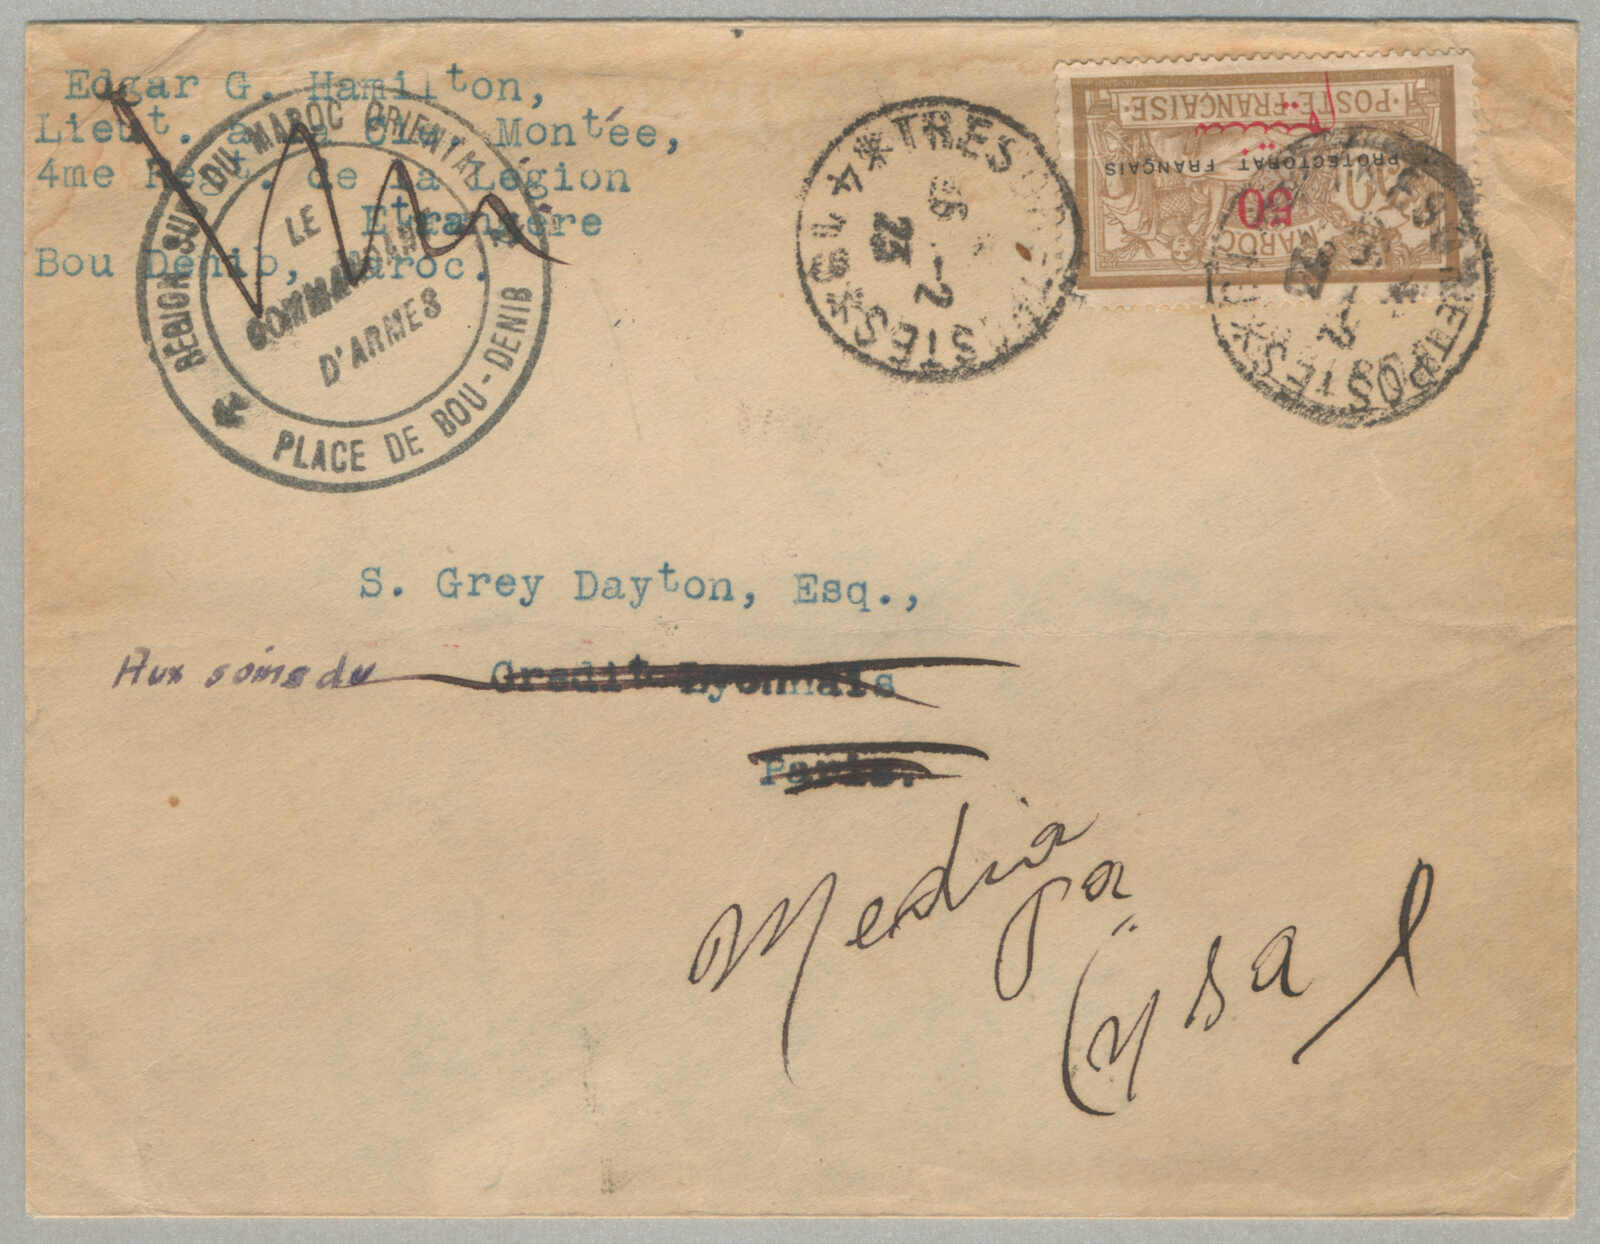 Edgar G. Hamilton,
Lieut. à la Cie. Montée,
4me Regt. de la Légion
Etrangère
Bou Denib, Maroc.
REGION SUD DU MAROC ORIENTAL
LE
COMMANDANT
D'ARMES
PLACE DE BOU-DENIB
TRESOR ET POSTES
26 -2
23
POSTE FRANÇAISE
PROTECTORAT FRANÇAIS
50
MAROC
POSTES
-2
S. Grey Dayton, Esq.,
Aux soins du Credit Lyonnais
Paris.
Media
Pa
U S a